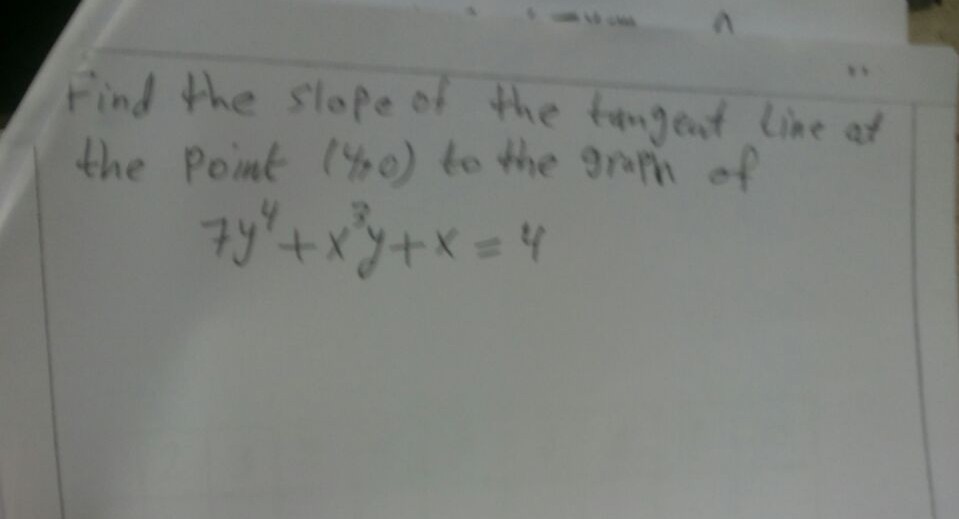 Find the slope of the tangent line at
the point (4,0) to the graph of
7y⁴+x³y+x=4